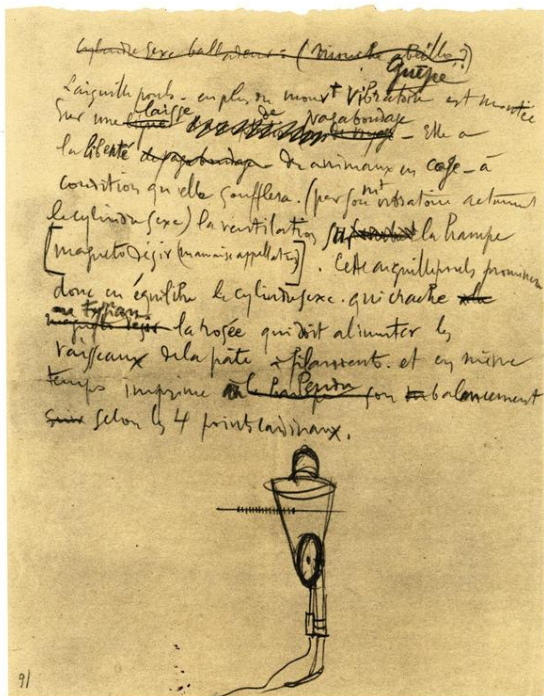 Cylindre sexe (mouche abeille ?)
Guêpe
L'aiguille pouls - en plus du mouvt vibratoire est montée
sur une ligne laisse de vagabondage - Elle a
la liberté de vagabondage des animaux en cage - à
condition qu'elle soufflera (par son mt vibratoire actionnant
le cylindre sexe) la ventilation la hampe
[magneto désir (mauvaise appellation)]. Cette aiguille pouls promènera
donc en équilibre le cylindre sexe. qui crache
au tympan magneto désir la rosée qui doit alimenter les
vaisseaux de la pâte à filaments. et en même
temps imprime au Pendu son balancement
selon les 4 points cardinaux.
91